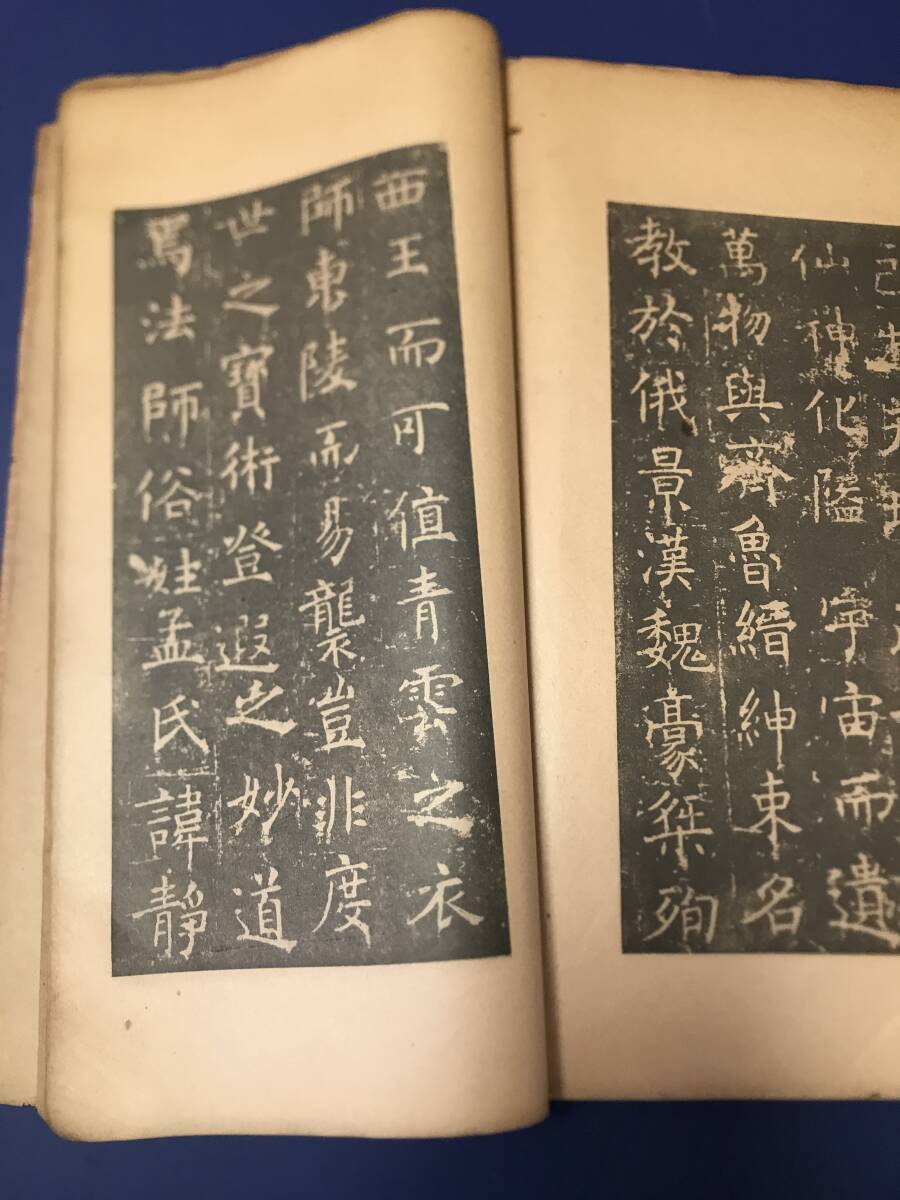 仙神化隘宇宙而遺
萬物與齊魯縉紳束名
教於俄景漢魏豪桀殉
西王而可值青雲之衣
師東陵而易襲豈非度
世之寶術登遐之妙道
焉法師俗姓孟氏諱靜